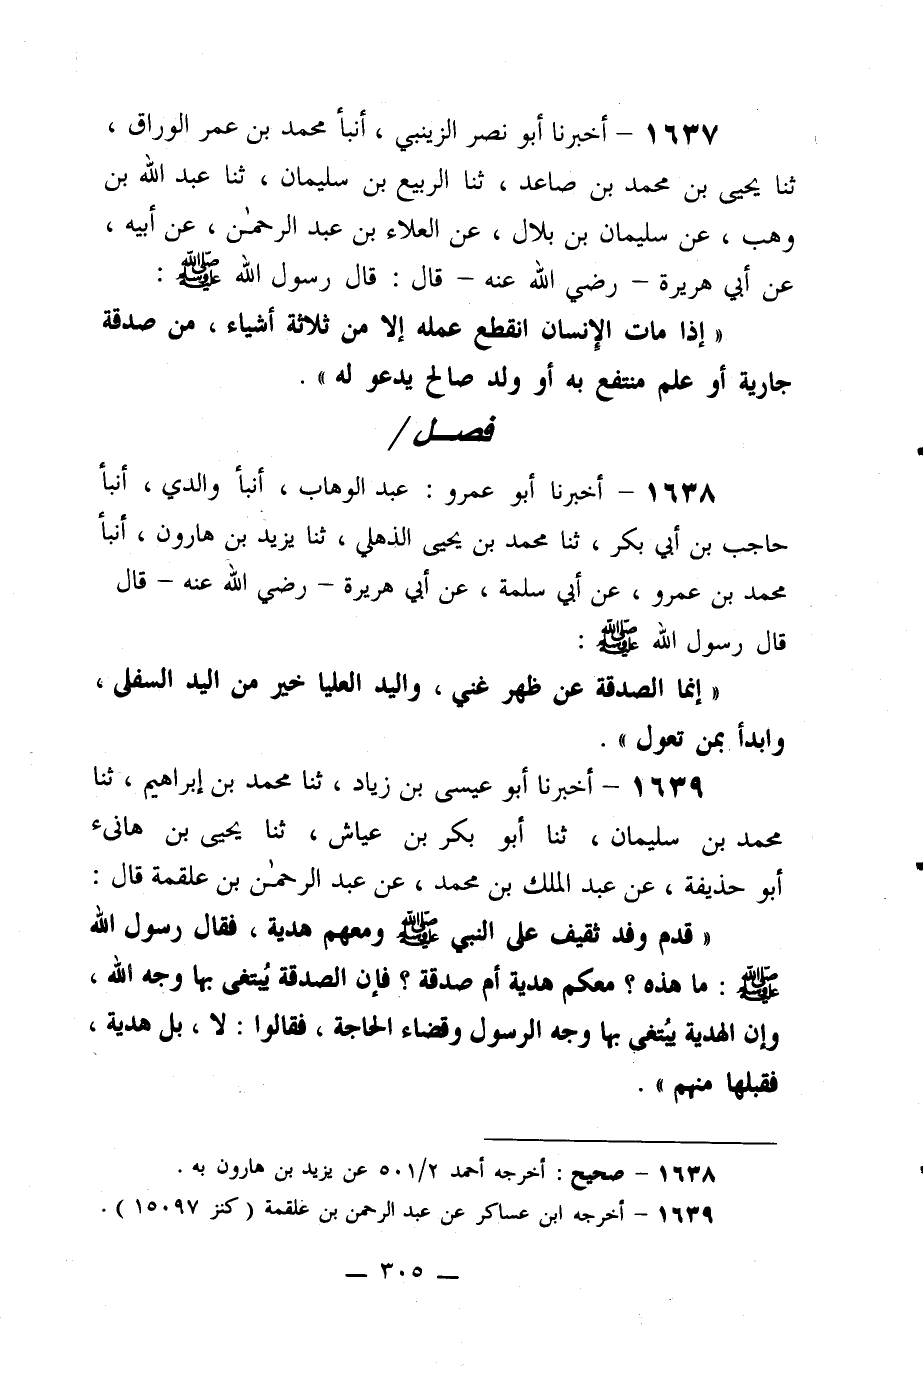 ١٦٣٧ – أخبرنا أبو نصر الزينبي ، أنبأ محمد بن عمر الوراق ،
ثنا يحيى بن محمد بن صاعد ، ثنا الربيع بن سليمان ، ثنا عبد الله بن
وهب ، عن سليمان بن بلال ، عن العلاء بن عبد الرحمٰن ، عن أبيه ،
عن أبي هريرة – رضي الله عنه – قال : قال رسول الله ﷺ :
« إذا مات الإنسان انقطع عمله إلا من ثلاثة أشياء ، من صدقة
جارية أو علم منتفع به أو ولد صالح يدعو له » .
فصـــل /
١٦٣٨ – أخبرنا أبو عمرو : عبد الوهاب ، أنبأ والدي ، أنبأ
حاجب بن أبي بكر ، ثنا محمد بن يحيى الذهلي ، ثنا يزيد بن هارون ، أنبأ
محمد بن عمرو ، عن أبي سلمة ، عن أبي هريرة – رضي الله عنه – قال
قال رسول الله ﷺ :
« إنما الصدقة عن ظهر غني ، واليد العليا خير من اليد السفلى ،
وابدأ بمن تعول » .
١٦٣٩ – أخبرنا أبو عيسى بن زياد ، ثنا محمد بن إبراهيم ، ثنا
محمد بن سليمان ، ثنا أبو بكر بن عياش ، ثنا يحيى بن هانىء
أبو حذيفة ، عن عبد الملك بن محمد ، عن عبد الرحمٰن بن علقمة قال :
« قدم وفد ثقيف على النبي ﷺ ومعهم هدية ، فقال رسول الله
ﷺ : ما هذه ؟ معكم هدية أم صدقة ؟ فإن الصدقة يُبتغى بها وجه الله ،
وإن الهدية يُبتغى بها وجه الرسول وقضاء الحاجة ، فقالوا : لا ، بل هدية ،
فقبلها منهم » .
١٦٣٨ – صحيح : أخرجه أحمد ٥٠١/٢ عن يزيد بن هارون به .
١٦٣٩ – أخرجه ابن عساكر عن عبد الرحمن بن علقمة ( كنز ١٥٠٩٧ ) .
– ٣٠٥ –